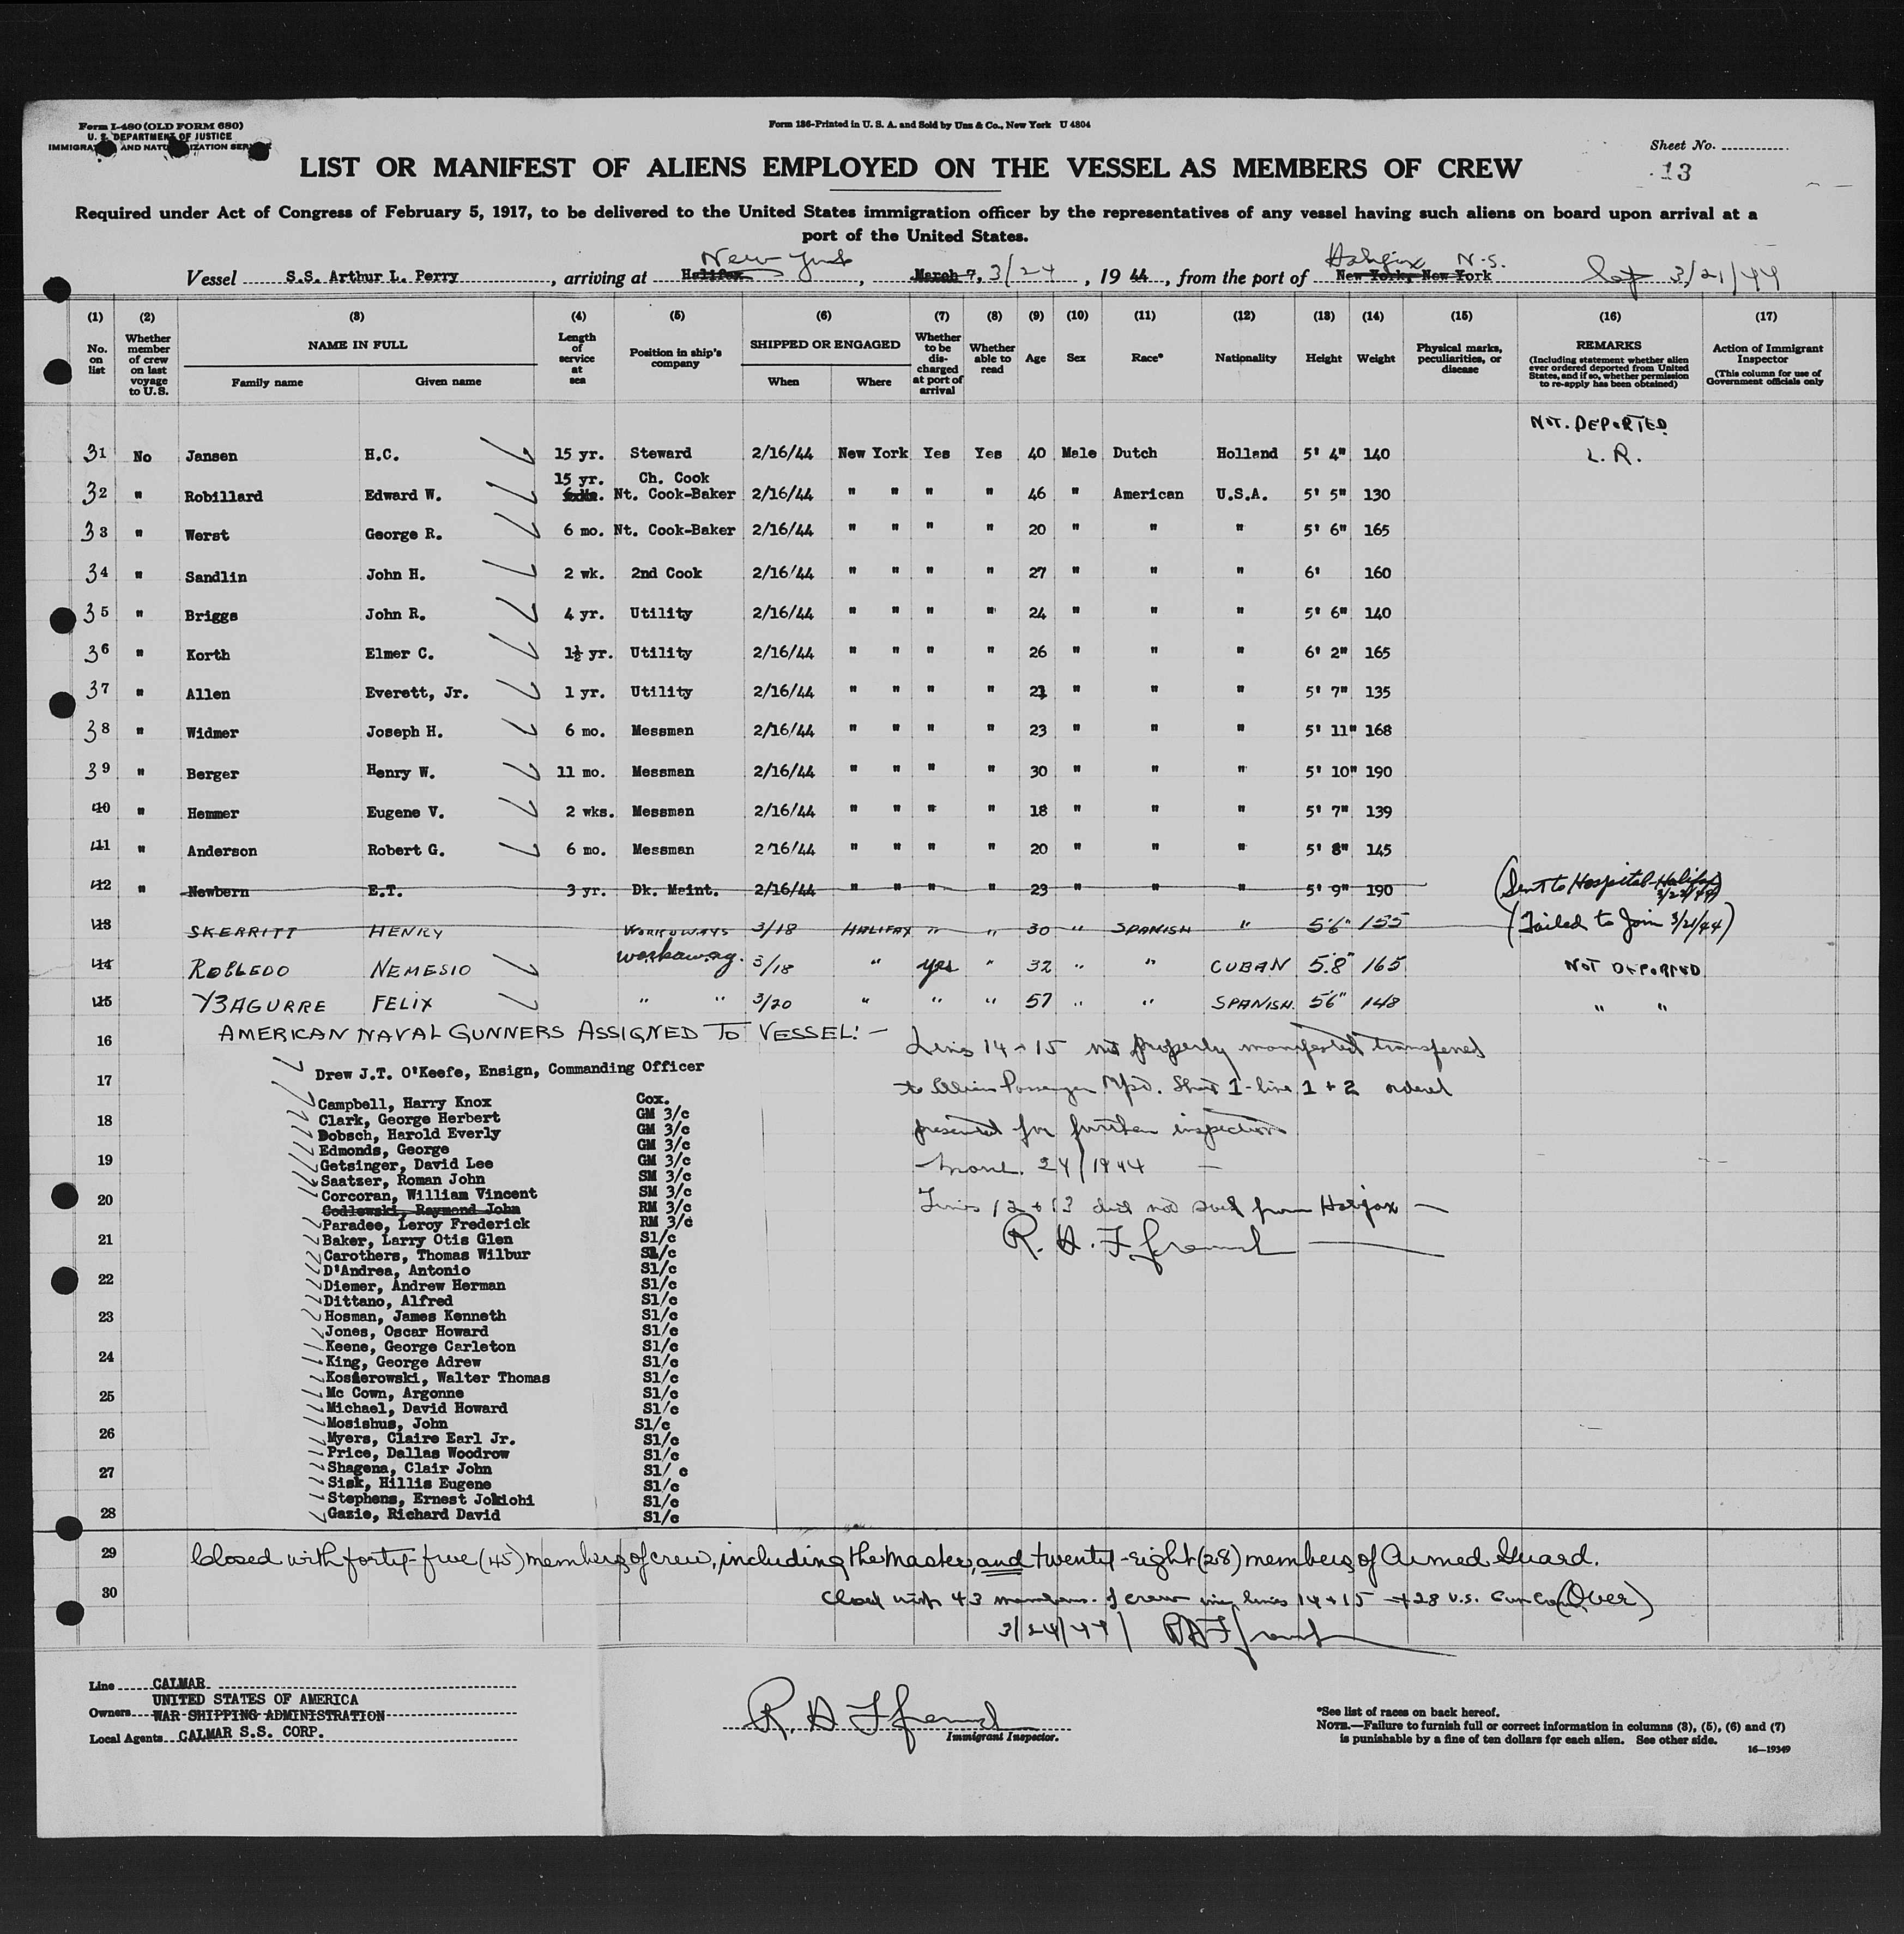 Form I-480 (OLD FORM 680)
U. S. DEPARTMENT OF JUSTICE
IMMIGRATION AND NATURALIZATION SERVICE
Form 186-Printed in U. S. A. and Sold by Unz & Co., New York U 4804
Sheet No.
13
LIST OR MANIFEST OF ALIENS EMPLOYED ON THE VESSEL AS MEMBERS OF CREW
Required under Act of Congress of February 5, 1917, to be delivered to the United States immigration officer by the representatives of any vessel having such aliens on board upon arrival at a
port of the United States.
New York Halifax N.S.
Vessel S.S. Arthur L. Perry, arriving at Halifax, March 7, 3/24, 19 44, from the port of New York, New York 3/21/44
(1) (2) (3) (4) (5) (6) (7) (8) (9) (10) (11) (12) (13) (14) (15) (16) (17)
No. on list
Whether member of crew on last voyage to U.S.
NAME IN FULL
Family name Given name
Length of service at sea
Position in ship's company
SHIPPED OR ENGAGED
When Where
Whether to be discharged at port of arrival
Whether able to read
Age
Sex
Race*
Nationality
Height
Weight
Physical marks, peculiarities, or disease
REMARKS
(Including statement whether alien ever ordered deported from United States, and if so, whether permission to re-apply has been obtained)
Action of Immigrant Inspector
(This column for use of Government officials only
NOT. DEPORTED
31 No Jansen H.C. 15 yr. Steward 2/16/44 New York Yes Yes 40 Male Dutch Holland 5' 4" 140 L.R.
15 yr. Ch. Cook
32 " Robillard Edward W. Nt. Cook-Baker 2/16/44 " " " " 46 " American U.S.A. 5' 5" 130
33 " Werst George R. 6 mo. Nt. Cook-Baker 2/16/44 " " " " 20 " " " 5' 6" 165
34 " Sandlin John H. 2 wk. 2nd Cook 2/16/44 " " " " 27 " " " 6' 160
35 " Briggs John R. 4 yr. Utility 2/16/44 " " " " 24 " " " 5' 6" 140
36 " Korth Elmer C. 1½ yr. Utility 2/16/44 " " " " 26 " " " 6' 2" 165
37 " Allen Everett, Jr. 1 yr. Utility 2/16/44 " " " " 21 " " " 5' 7" 135
38 " Widmer Joseph H. 6 mo. Messman 2/16/44 " " " " 23 " " " 5' 11" 168
39 " Berger Henry W. 11 mo. Messman 2/16/44 " " " " 30 " " " 5' 10" 190
40 " Hemmer Eugene V. 2 wks. Messman 2/16/44 " " " " 18 " " " 5' 7" 139
41 " Anderson Robert G. 6 mo. Messman 2/16/44 " " " " 20 " " " 5' 8" 145
42 " Newbern E.T. 3 yr. Dk. Maint. 2/16/44 " " " " 23 " " " 5' 9" 190 (Sent to Hospital Halifax 3/22/44)
13 SKERRITT HENRY WORKAWAYS 3/18 HALIFAX " " 30 " SPANISH " 5'6" 155 (Failed to Join 3/21/44)
14 ROBLEDO NEMESIO workaway. 3/18 " yes " 32 " " CUBAN 5.8" 165 NOT DEPORTED
15 YZAGURRE FELIX " " 3/20 " " " 57 " " SPANISH. 5'6" 148 " "
16 AMERICAN NAVAL GUNNERS ASSIGNED TO VESSEL:-
Lines 14 + 15 not properly manifested transferred
17 Drew J.T. O'Keefe, Ensign, Commanding Officer
to Alien Passenger Mfd. Sheet 1 - line 1 + 2 ordered
Campbell, Harry Knox Cox.
18 Clark, George Herbert GM 3/c
presented for further inspection
Dobsch, Harold Everly GM 3/c
Edmonds, George GM 3/c
19 Getsinger, David Lee GM 3/c
24/1944
Saatzer, Roman John SM 3/c
Corcoran, William Vincent SM 3/c
20 Godlewski, Raymond John RM 3/c
Lines 12 + 13 did not sail from Halifax
Paradee, Leroy Frederick RM 3/c
21 Baker, Larry Otis Glen S1/c
Carothers, Thomas Wilbur S1/c
D'Andrea, Antonio S1/c
22 Diemer, Andrew Herman S1/c
Dittano, Alfred S1/c
23 Hosman, James Kenneth S1/c
Jones, Oscar Howard S1/c
Keene, George Carleton S1/c
24 King, George Adrew S1/c
Kosierowski, Walter Thomas S1/c
25 Mc Cown, Argonne S1/c
Michael, David Howard S1/c
Mosishus, John S1/c
26 Myers, Claire Earl Jr. S1/c
Price, Dallas Woodrow S1/c
27 Shagena, Clair John S1/ c
Sisk, Hillis Eugene S1/c
Stephens, Ernest Jokiohi S1/c
28 Gazie, Richard David S1/c
29 Closed with forty-five (45) members of crew, including the master, and twenty-eight (28) members of Armed Guard.
30 Closed with 43 members of crew lines 14 + 15 + 28 U.S. (Over)
3/24/44
Line CALMAR
UNITED STATES OF AMERICA
Owners WAR SHIPPING ADMINISTRATION
Local Agents CALMAR S.S. CORP.
Immigrant Inspector.
*See list of races on back hereof.
NOTE.—Failure to furnish full or correct information in columns (3), (5), (6) and (7)
is punishable by a fine of ten dollars for each alien. See other side.
16—19349